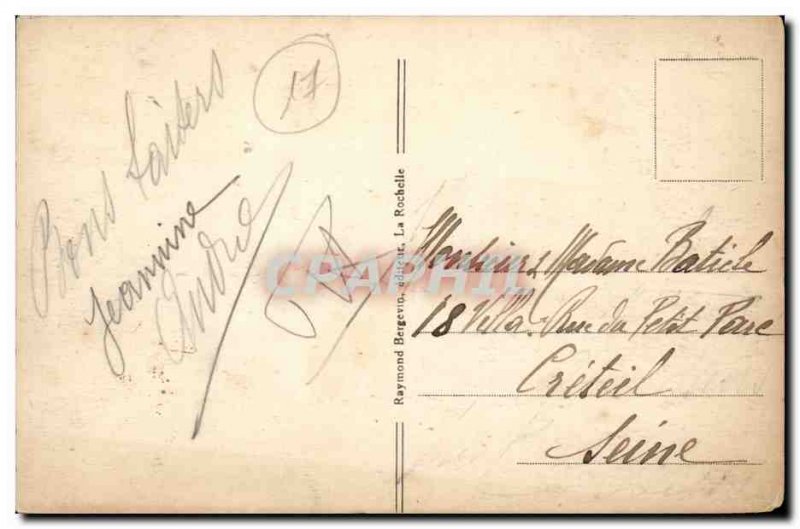 17
Bons baisers
Jeannine
André
Raymond Bergevin, éditeur, La Rochelle
CPAPHIL
Monsieur, Madame Batiele
18 Villa. Rue du Petit Parc
Créteil
Seine